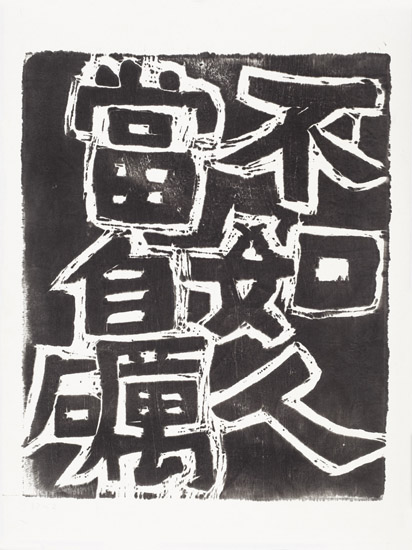 不如人
當自礪